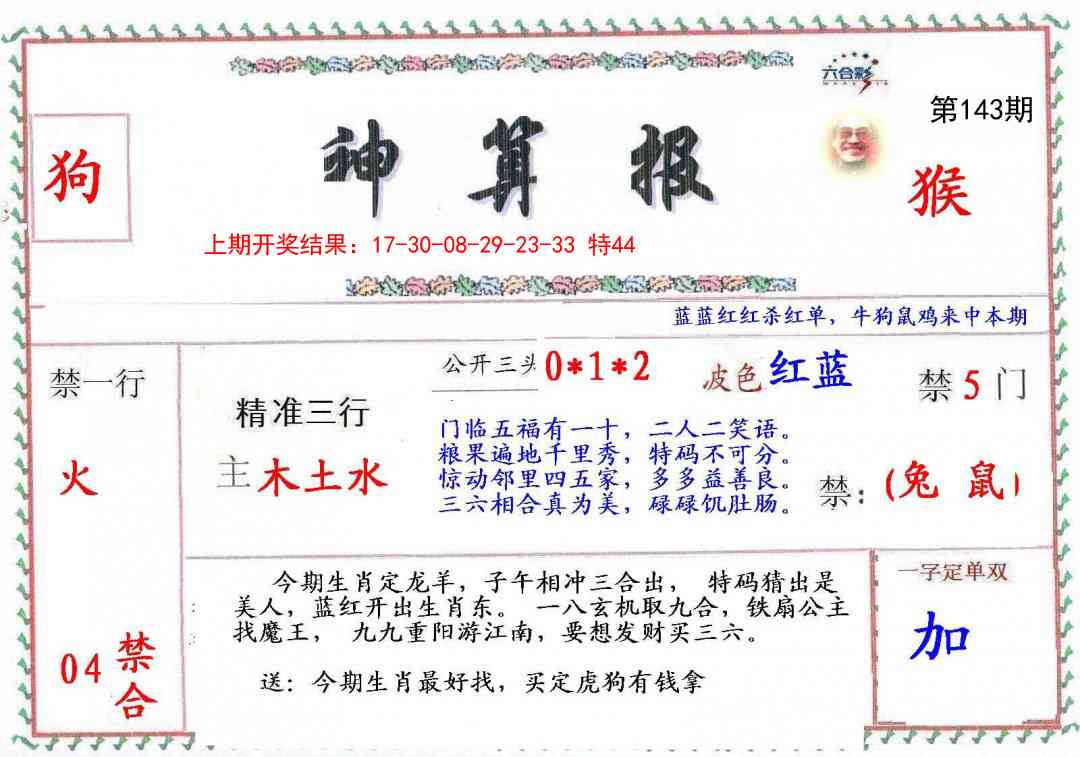 六合彩
第143期
狗
神算报
猴
上期开奖结果：17-30-08-29-23-33 特44
蓝蓝红红杀红单，牛狗鼠鸡来中本期
禁一行
公开三头 0*1*2
波色 红蓝
禁 5 门
精准三行
门临五福有一十，二人二笑语。
粮果遍地千里秀，特码不可分。
火
主 木土水
惊动邻里四五家，多多益善良。
三六相合真为美，碌碌饥肚肠。
禁：(兔 鼠)
今期生肖定龙羊，子午相冲三合出， 特码猜出是
美人，蓝红开出生肖东。 一八玄机取九合，铁扇公主
找魔王， 九九重阳游江南，要想发财买三六。
一字定单双
加
04 禁合
送：今期生肖最好找，买定虎狗有钱拿